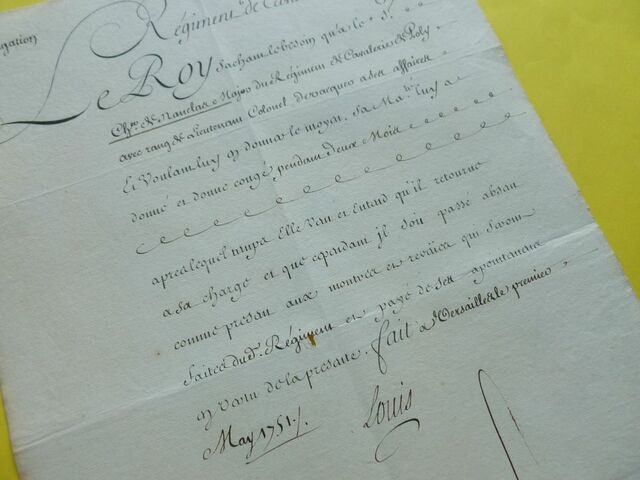 Régiment de Cav
gation
Le Roy sachant le besoin qu'a le S.r
Ch.er de Nanclas Major du Régiment de Cavalerie de Poly
avec rang de Lieutenant Colonel, de vacquer a ses affaires
Et Voulant luy en donner le moyen, Sa Ma.té luy a
donné et donne congé pendant deux Mois
apres lequel temps Elle Veut et Entend qu'il retourne
a sa charge et que cependant il soit passé absent
comme present aux montres et reveües qui seront
faites dud. Régiment et payé de ses apointemens
en vertu de la presente. fait a Versailles le premier
May 1751./.
Louis